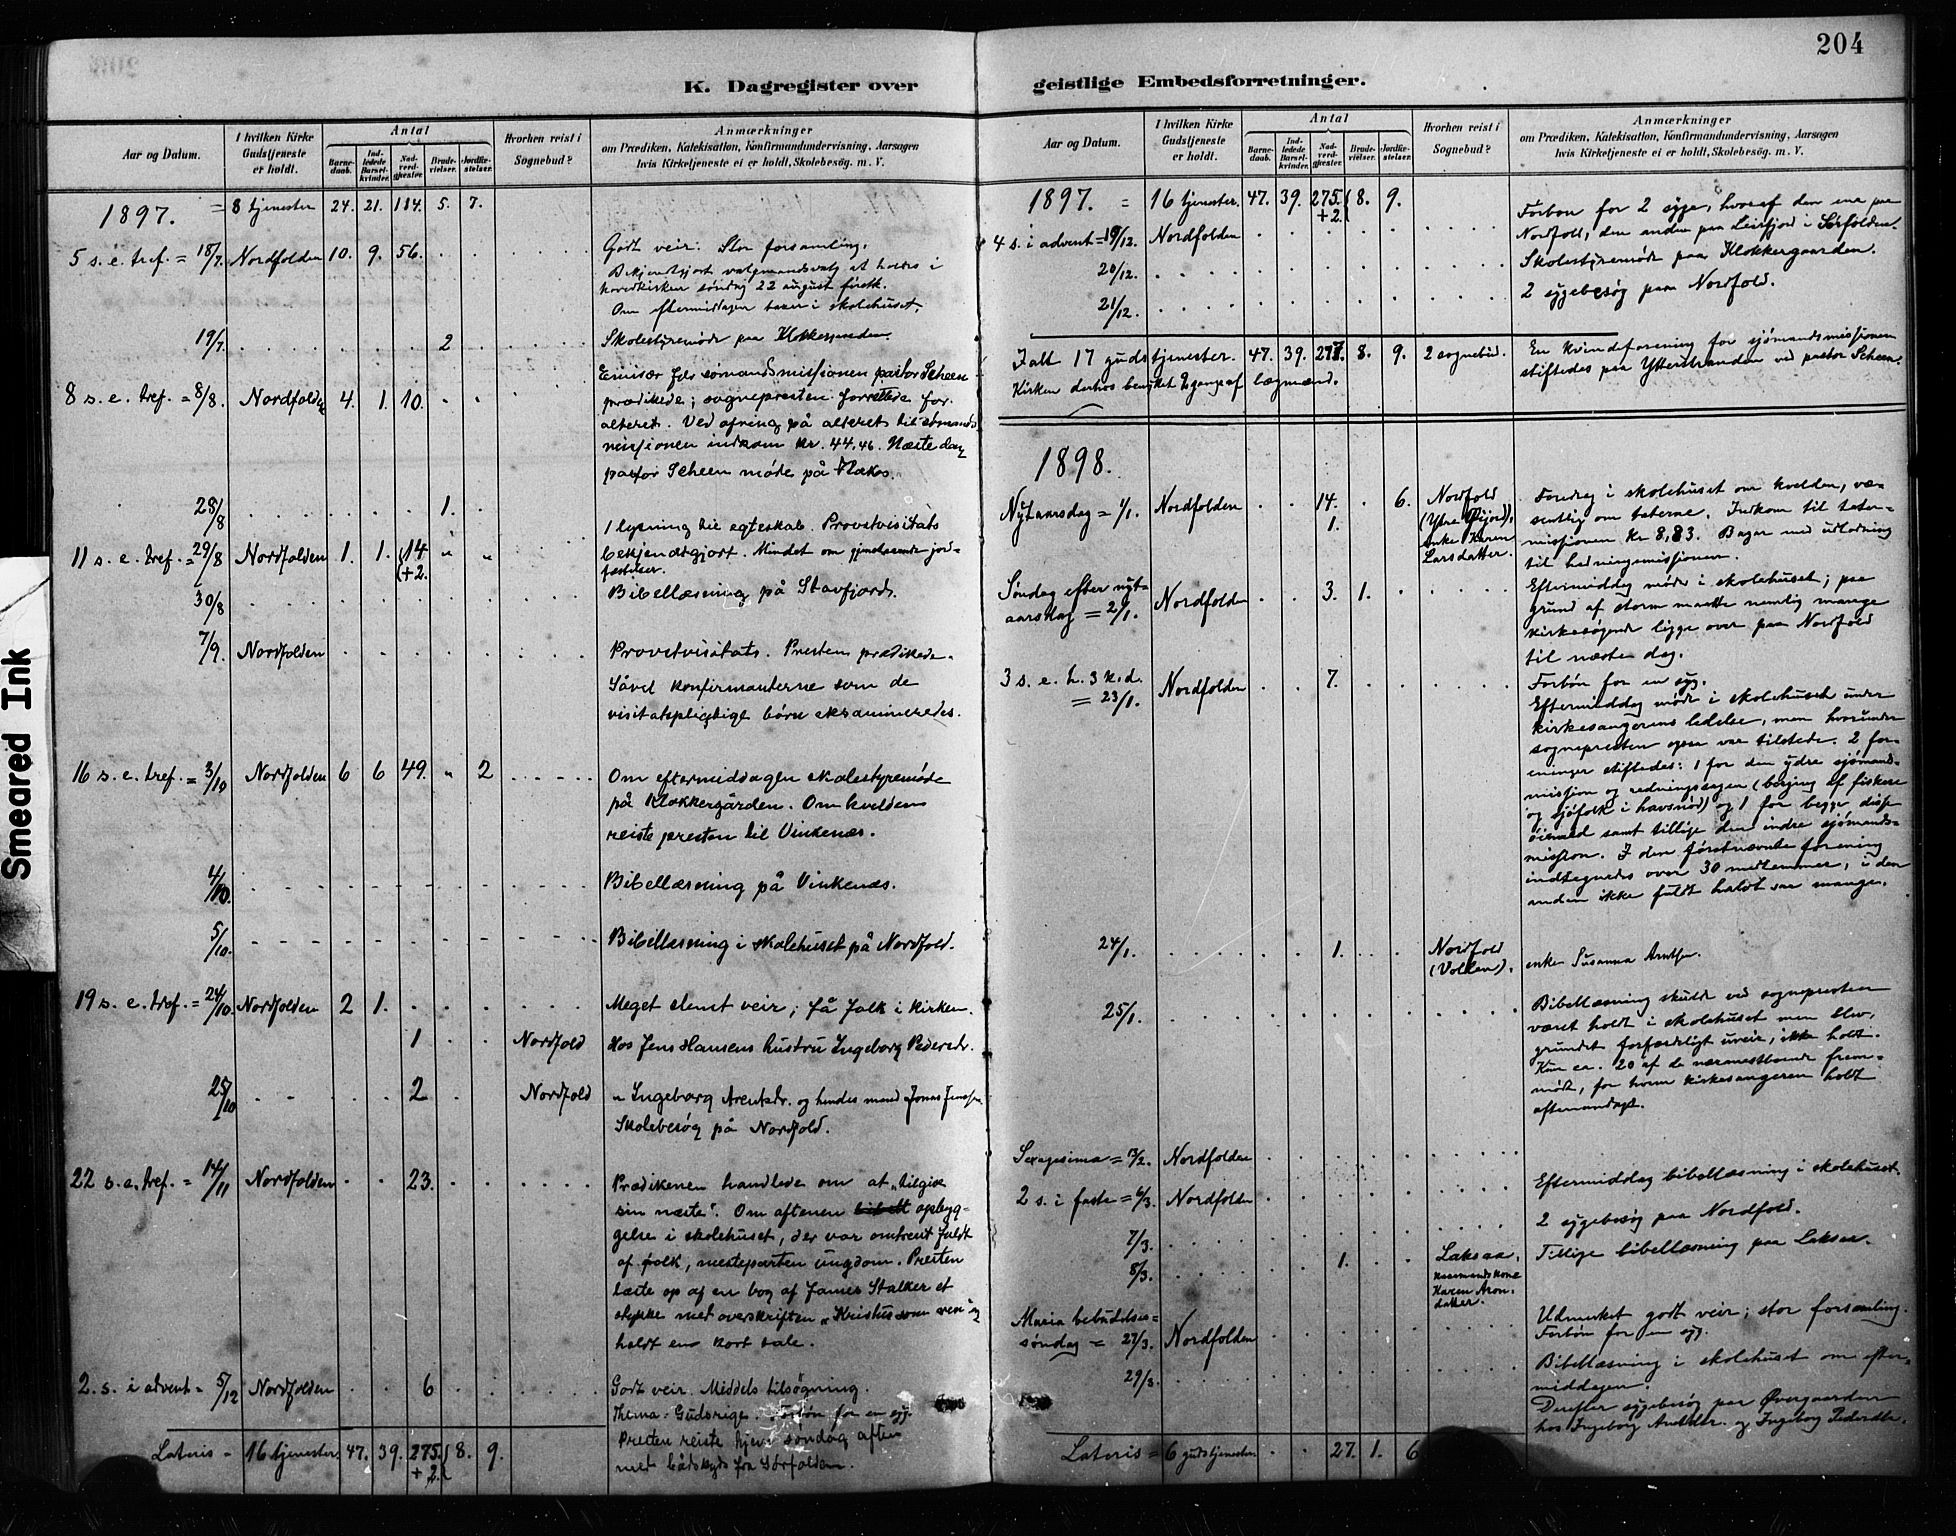 204
K. Dagregister over
geistlige Embedsforretninger.
Aar og Datum.
I hvilken Kirke Gudstjeneste er holdt.
Antal
Barnedaab.
Indledede Barselkvinder.
Nadverdgjester.
Brudevielser.
Jordfæstelser.
Hvorhen reist i Sognebud?
Anmærkninger
om Prædiken, Katekisation, Konfirmandundervisning, Aarsagen
hvis Kirketjeneste ei er holdt, Skolebesøg. m. V.
1897. = 8 tjenester 24. 21. 114. 5. 7.
5 s. e. tref. = 18/7. Nordfolden 10. 9. 56.
Godt veir. Stor forsamling.
Bekjendtgjort valgmandsvalg at holdes i
hovedkirken søndag 22 august førstk.
Om eftermiddagen taler i skolehuset.
19/7. 2
Skolestyremøde paa Klokkergaarden.
8 s. e. tref. = 8/8. Nordfolden 4. 1. 10.
Emisær for sømandsmissionen pastor Scheen
prædikede; sognepresten forrettede for
alteret. Ved ofring på alteret til sømands
missionen indkom kr. 44,46. Næste dag
pastor Scheen møde på
28/8 1.
11 s. e. tref. = 29/8 Nordfolden 1. 1. 14 + 2.
1 lysning til egteskab. Provstvisitats
bekjendtgjort. Mindet om gjenstaaende jord=
fæstelser.
30/8
Bibellæsning på Stavfjord.
7/9. Nordfolden
Provstvisitats. Presten prædikede.
Såvel konfirmanterne som de
visitatspligtige børn eksamineredes.
16 s. e. tref. = 3/10 Nordfolden 6 6 49. " 2
Om eftermiddagen skolestyremøde
på Klokkergården. Om kvelden
reiste presten til Vinkenes.
4/10.
Bibellæsning på Vinkenes.
5/10.
Bibellæsning i skolehuset på Nordfold.
19 s. e. tref. = 24/10. Nordfolden 2 1.
Meget slemt veir; få folk i kirken.
1 Nordfold
Hos Jens Hansens hustru Ingeborg Pedersdr.
25/10 2 Nordfold
" Ingeborg Arentsdr. og hendes mand Jonas Jensen
Skolebesøg på Nordfold.
22 s. e. tref. = 14/11 Nordfolden 23.
Prædikenen handlede om at „tilgive
sin næste". Om aftenen opbyg=
gelse i skolehuset, der var omtrent fuldt
af folk, mesteparten ungdom. Presten
læste op af en bog af James Stalker et
stykke med overskriften „Kristus som ven" og
holdt en kort tale.
2. s. i advent = 5/12 Nordfolden 6
Godt veir. Middels tilsøgning.
Thema: Gudsrige. Forbøn for en syg.
Presten reiste hjem søndag aften
med bådskyds fra Sørfolden.
Lateris = 16 tjenester 47. 39. 275. + 2. 8. 9.
Aar og Datum.
I hvilken Kirke Gudstjeneste er holdt.
Antal
Barnedaab.
Indledede Barselkvinder.
Nadverdgjester.
Brudevielser.
Jordfæstelser.
Hvorhen reist i Sognebud?
Anmærkninger
om Prædiken, Katekisation, Konfirmandundervisning, Aarsagen
hvis Kirketjeneste ei er holdt, Skolebesøg. m. V.
1897. = 16 tjenester. 47. 39. 275. + 2. 8. 9.
4 s. i advent = 19/12. Nordfolden
Forbøn for 2 syge, hvoraf den ene paa
Nordfold, den anden paa Leirfjord i Sørfolden.
20/12.
Skolestyremøde paa Klokkergaarden.
21/12.
2 sygebesøg paa Nordfold.
Ialt 17 gudstjenester. 47. 39. 277. 8. 9. 2 sognebud.
Kirken derhos benyttet 2 gange af lægmænd.
En kvindeforening for sjømandsmissionen
stiftedes paa Ytterstranden ved pastor Scheen.
1898.
Nytaarsdag = 1/1. Nordfolden 14. 1. 6.
Nordfold
enke Karen
Larsdatter.
Foredrag i skolehuset om kvelden, væ=
sentlig om taterne. Indkom til tater=
missionen kr 8,83. Bazar med udlodning
til hedningemissionen.
Søndag efter nyt=
aarsdag = 2/1. Nordfolden 3. 1.
Eftermiddag møde i skolehuset; paa
grund af storm maatte nemlig mange
kirkesøgende ligge over paa Nordfold
til næste dag.
3 s. e. h. 3 k. d.
= 23/1. Nordfolden 7.
Forbøn for en syg.
Eftermiddag møde i skolehuset under
kirkesangerens ledelse, men hvorunder
sognepresten ogsaa var tilstede. 2 for=
eninger stiftedes: 1 for den ydre sjømands=
mission og redningssagen (berging af fiskere
og sjøfolk i havsnød) og 1 for begge disse
øiemed samt tillige den indre sjømands=
mission. I den førstnævnte forening
indtegnedes over 30 medlemmer, i den
anden ikke fuldt halvt saa mange.
24/1. 1.
Nordfold
(Vollen).
enke Susanna Arntsen.
25/1.
Bibellæsning skulde ved sognepresten
været holdt i skolehuset men blev,
grundet forfærdeligt uveir, ikke holdt.
Kun ca. 20 af de nærmestboende frem=
mødt, for hvem kirkesangeren holdt
aftenandagt.
Sexagesima = 13/2. Nordfolden
Eftermiddag bibellæsning i skolehuset.
2 s. i faste = 6/3. Nordfolden
7/3.
2 sygebesøg paa Nordfold.
8/3. 1. Laksaa,
Karen Aron
datter.
Tillige bibellæsning paa Laksaa.
Maria bebudelses=
søndag = 27/3. Nordfolden
Udmerket godt veir; stor forsamling.
Forbøn for en syg.
29/3.
Bibellæsning i skolehuset om efter=
middagen.
Derefter sygebesøg paa Øvergaarden
hos Ingeborg Arntsdtr. og Ingeborg Pedersdtr.
Lateris = 6 gudstjenester 27. 1. 6
Smeared Ink